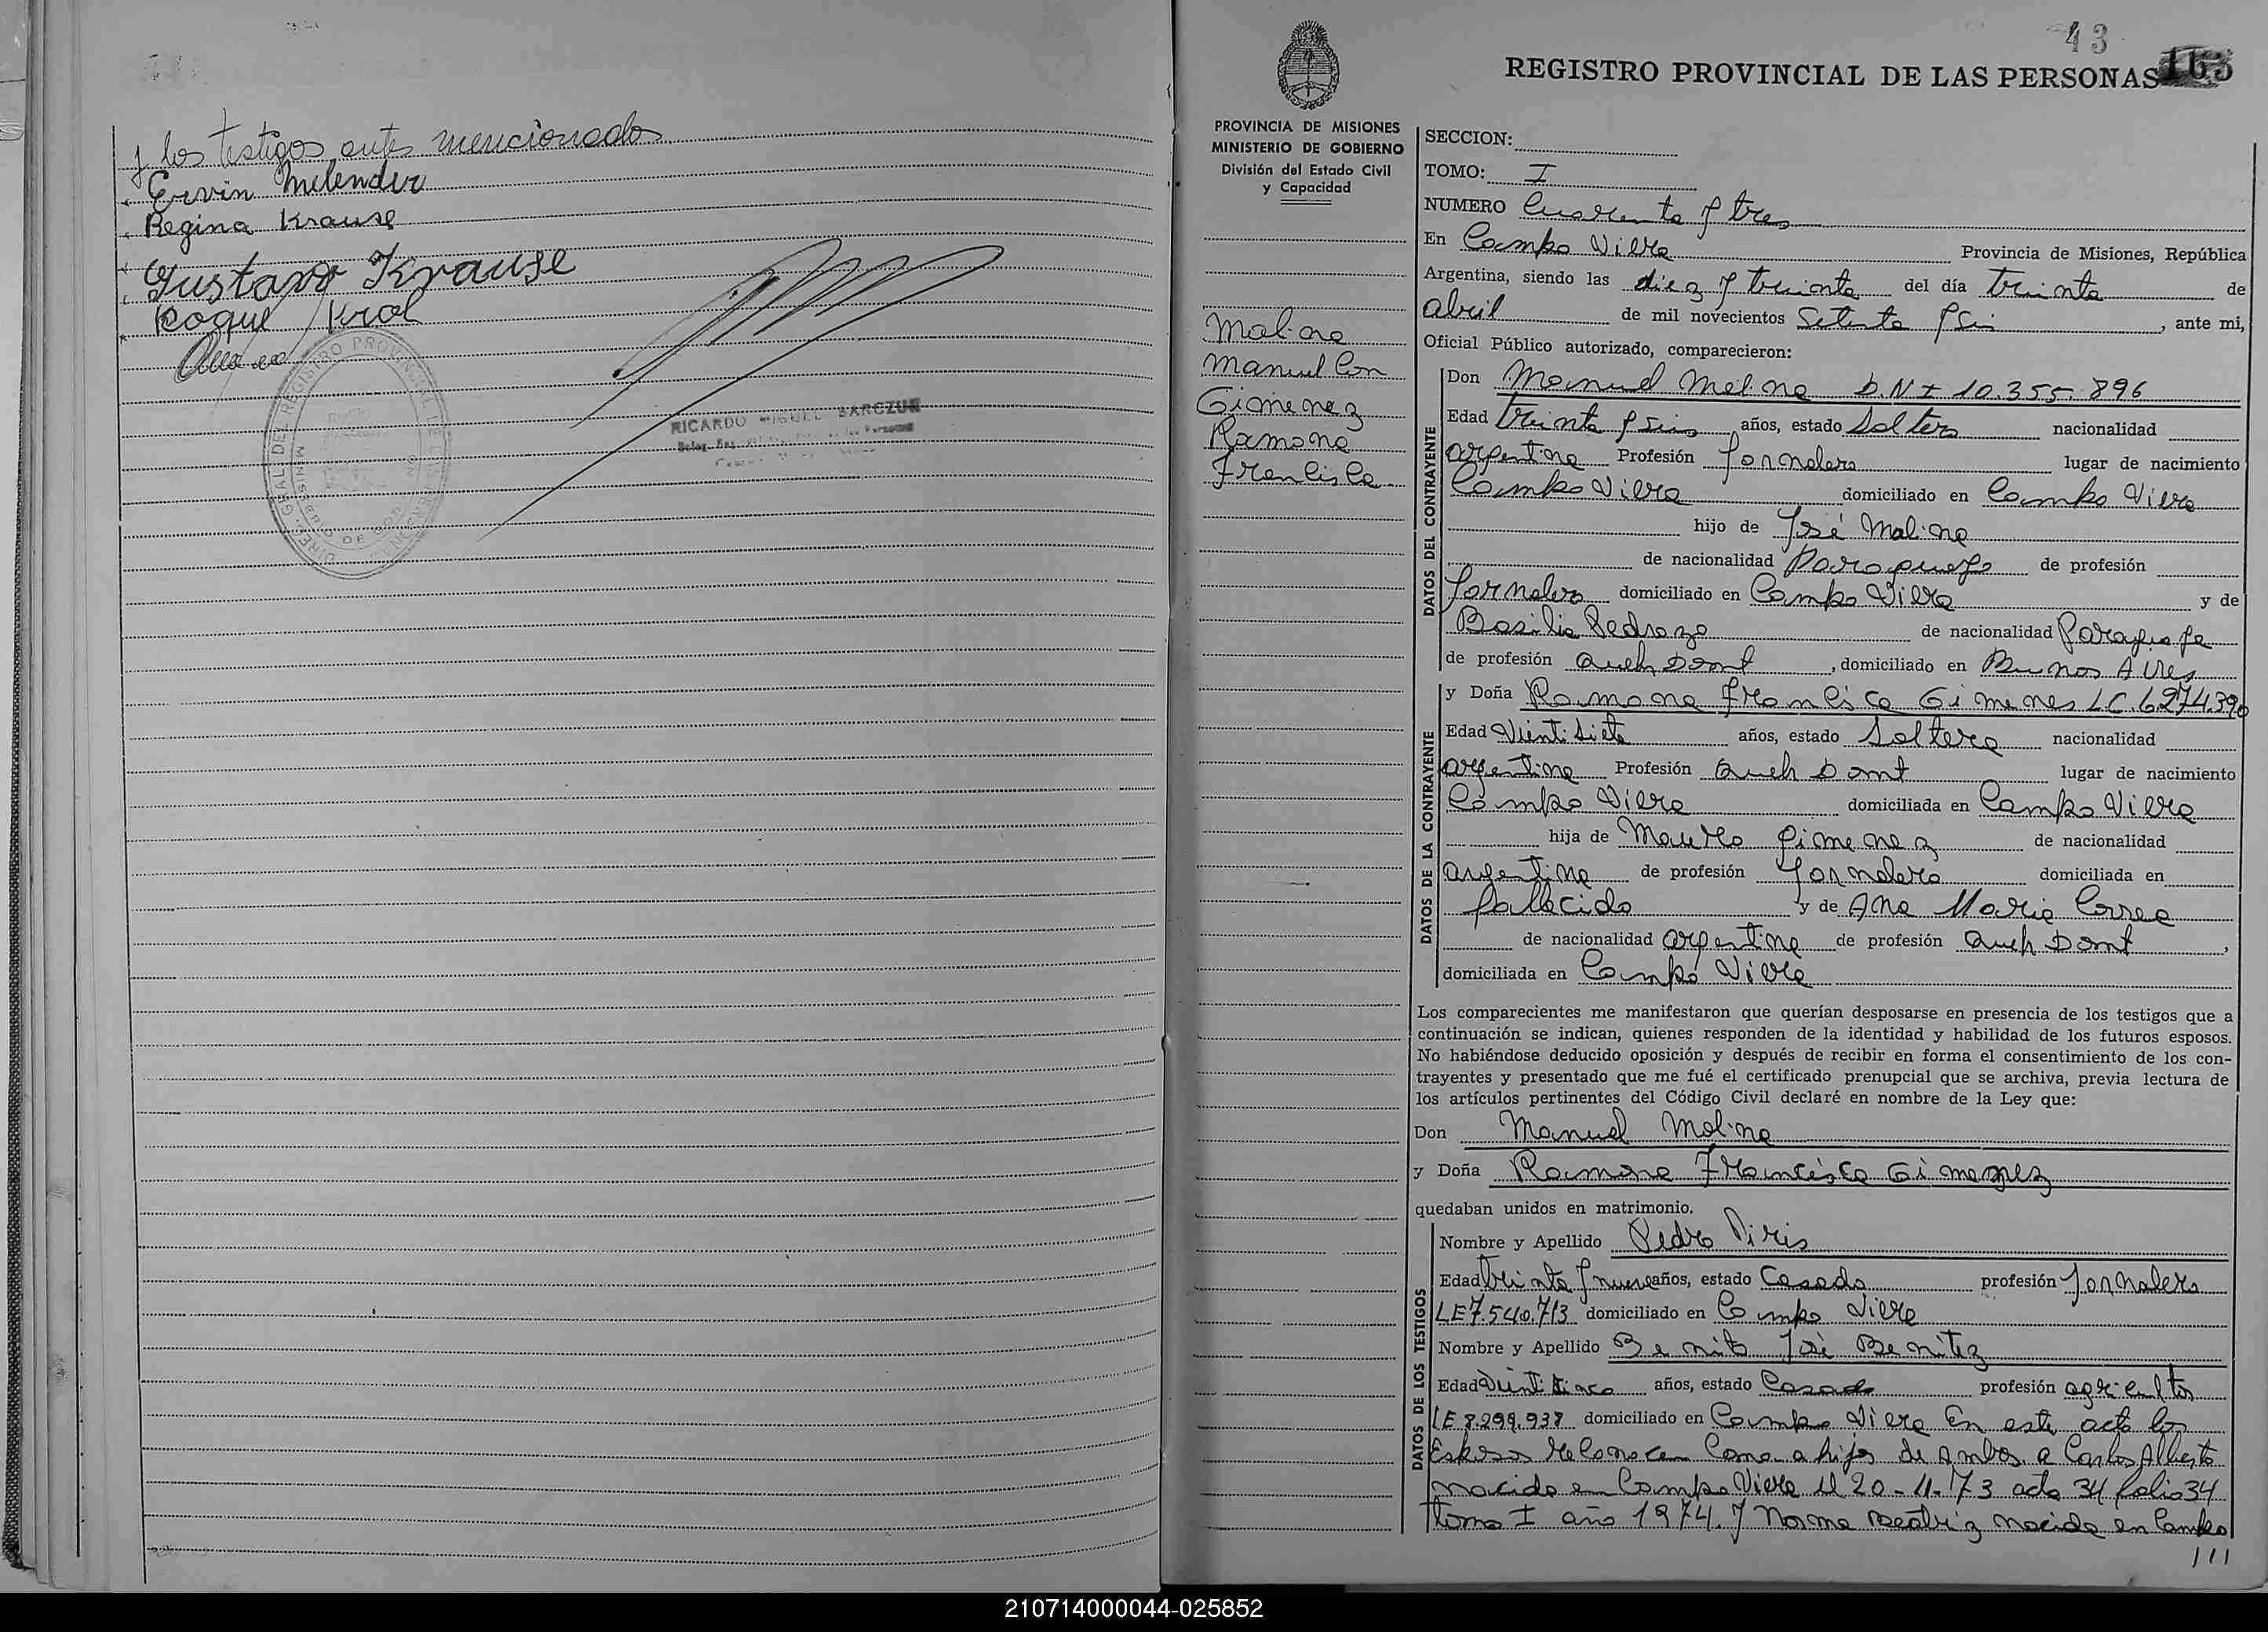 y los testigos antes mencionados
Ervin Melender
Regina Krause
Gustavo Krause
Roque Krol
DIREC. GRAL DEL REGISTRO PROVINCIAL DE LAS PERSONAS
MINISTERIO DE GOBIERNO
RICARDO MIGUEL BARCZUK
43
REGISTRO PROVINCIAL DE LAS PERSONAS
PROVINCIA DE MISIONES
MINISTERIO DE GOBIERNO
División del Estado Civil
y Capacidad
Molina
Manuel Con
Gimenez
Ramona
Francisca
SECCION:
TOMO: I
NUMERO Cuarenta y tres
En Campo Viera Provincia de Misiones, República
Argentina, siendo las diez y treinta del día treinta de
abril de mil novecientos Setenta y Seis, ante mi,
Oficial Público autorizado, comparecieron:
DATOS DEL CONTRAYENTE
Don Manuel Molina D.N.I 10.355.896
Edad treinta y Seis años, estado Soltero nacionalidad
argentina Profesión Jornalero lugar de nacimiento
Campo Viera domiciliado en Campo Viera
hijo de José Molina
de nacionalidad Paraguayo de profesión
Jornalero domiciliado en Campo Viera y de
Basilia Pedrozo de nacionalidad Paraguaya
de profesión Queh Domt, domiciliado en Buenos Aires
DATOS DE LA CONTRAYENTE
y Doña Ramona Francisca Gimenes LC.6.274.390
Edad Vientisiete años, estado Soltera nacionalidad
argentina Profesión Queh Domt lugar de nacimiento
Campo Viera domiciliada en Campo Viera
hija de Mauro Gimenez de nacionalidad
argentina de profesión Jornalero domiciliada en
fallecido y de Ana Maria Correa
de nacionalidad argentina de profesión Queh Domt,
domiciliada en Campo Viera
Los comparecientes me manifestaron que querían desposarse en presencia de los testigos que a
continuación se indican, quienes responden de la identidad y habilidad de los futuros esposos.
No habiéndose deducido oposición y después de recibir en forma el consentimiento de los con-
trayentes y presentado que me fué el certificado prenupcial que se archiva, previa lectura de
los artículos pertinentes del Código Civil declaré en nombre de la Ley que:
Don Manuel Molina
y Doña Ramona Francisca Gimenez
quedaban unidos en matrimonio.
DATOS DE LOS TESTIGOS
Nombre y Apellido Pedro Piris
Edad treinta y nueve años, estado Casado profesión Jornalero
LE 7.540.713 domiciliado en Campo Viera
Nombre y Apellido Benito José Benitez
Edad Vienticinco años, estado Casado profesión agricultor
LE 8.299.937 domiciliado en Campo Viera En este acto los
Esposos reconocen como a hijos de Ambos a Carlos Alberto
nacido en Campo Viera el 20-11-73 acta 34 folio 34
tomo I año 1974. y Norma Beatriz nacida en Campo
///
210714000044-025852